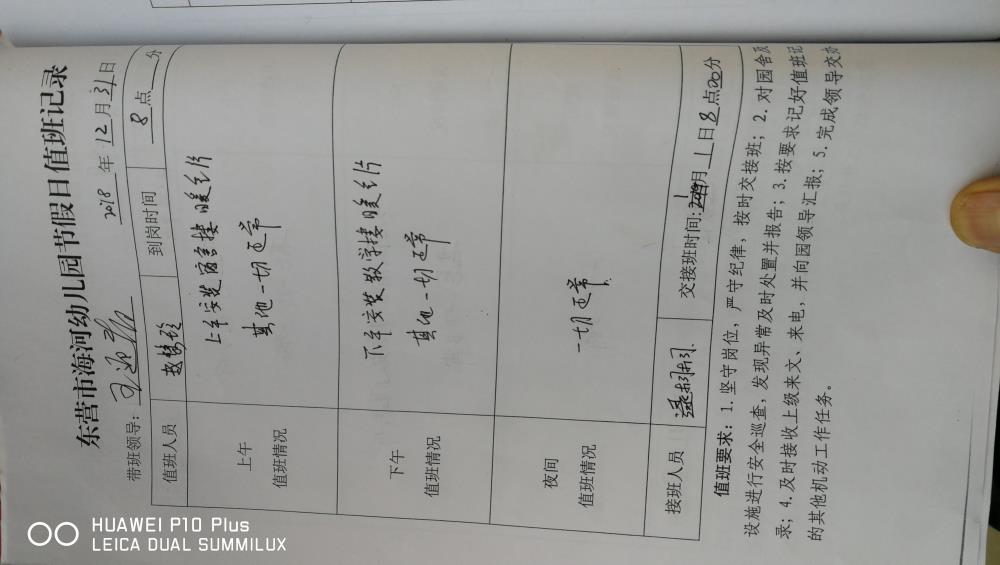 东营市海河幼儿园节假日值班记录
带班领导: 2018 年 12 月 31 日
值班人员 赵梦 到岗时间 8 点 分
上午
值班情况
上午安装宿舍楼暖气片
其他一切正常
下午
值班情况
下午安装教学楼暖气片
其他一切正常
夜间
值班情况
一切正常
接班人员 交接班时间: 1 月 1 日 8 点 00 分
值班要求: 1. 坚守岗位, 严守纪律, 按时交接班; 2. 对园舍及
设施进行安全巡查, 发现异常及时处置并报告; 3. 按要求记好值班记
录; 4. 及时接收上级来文、来电, 并向园领导汇报; 5. 完成领导交办
的其他机动工作任务。
HUAWEI P10 Plus
LEICA DUAL SUMMILUX